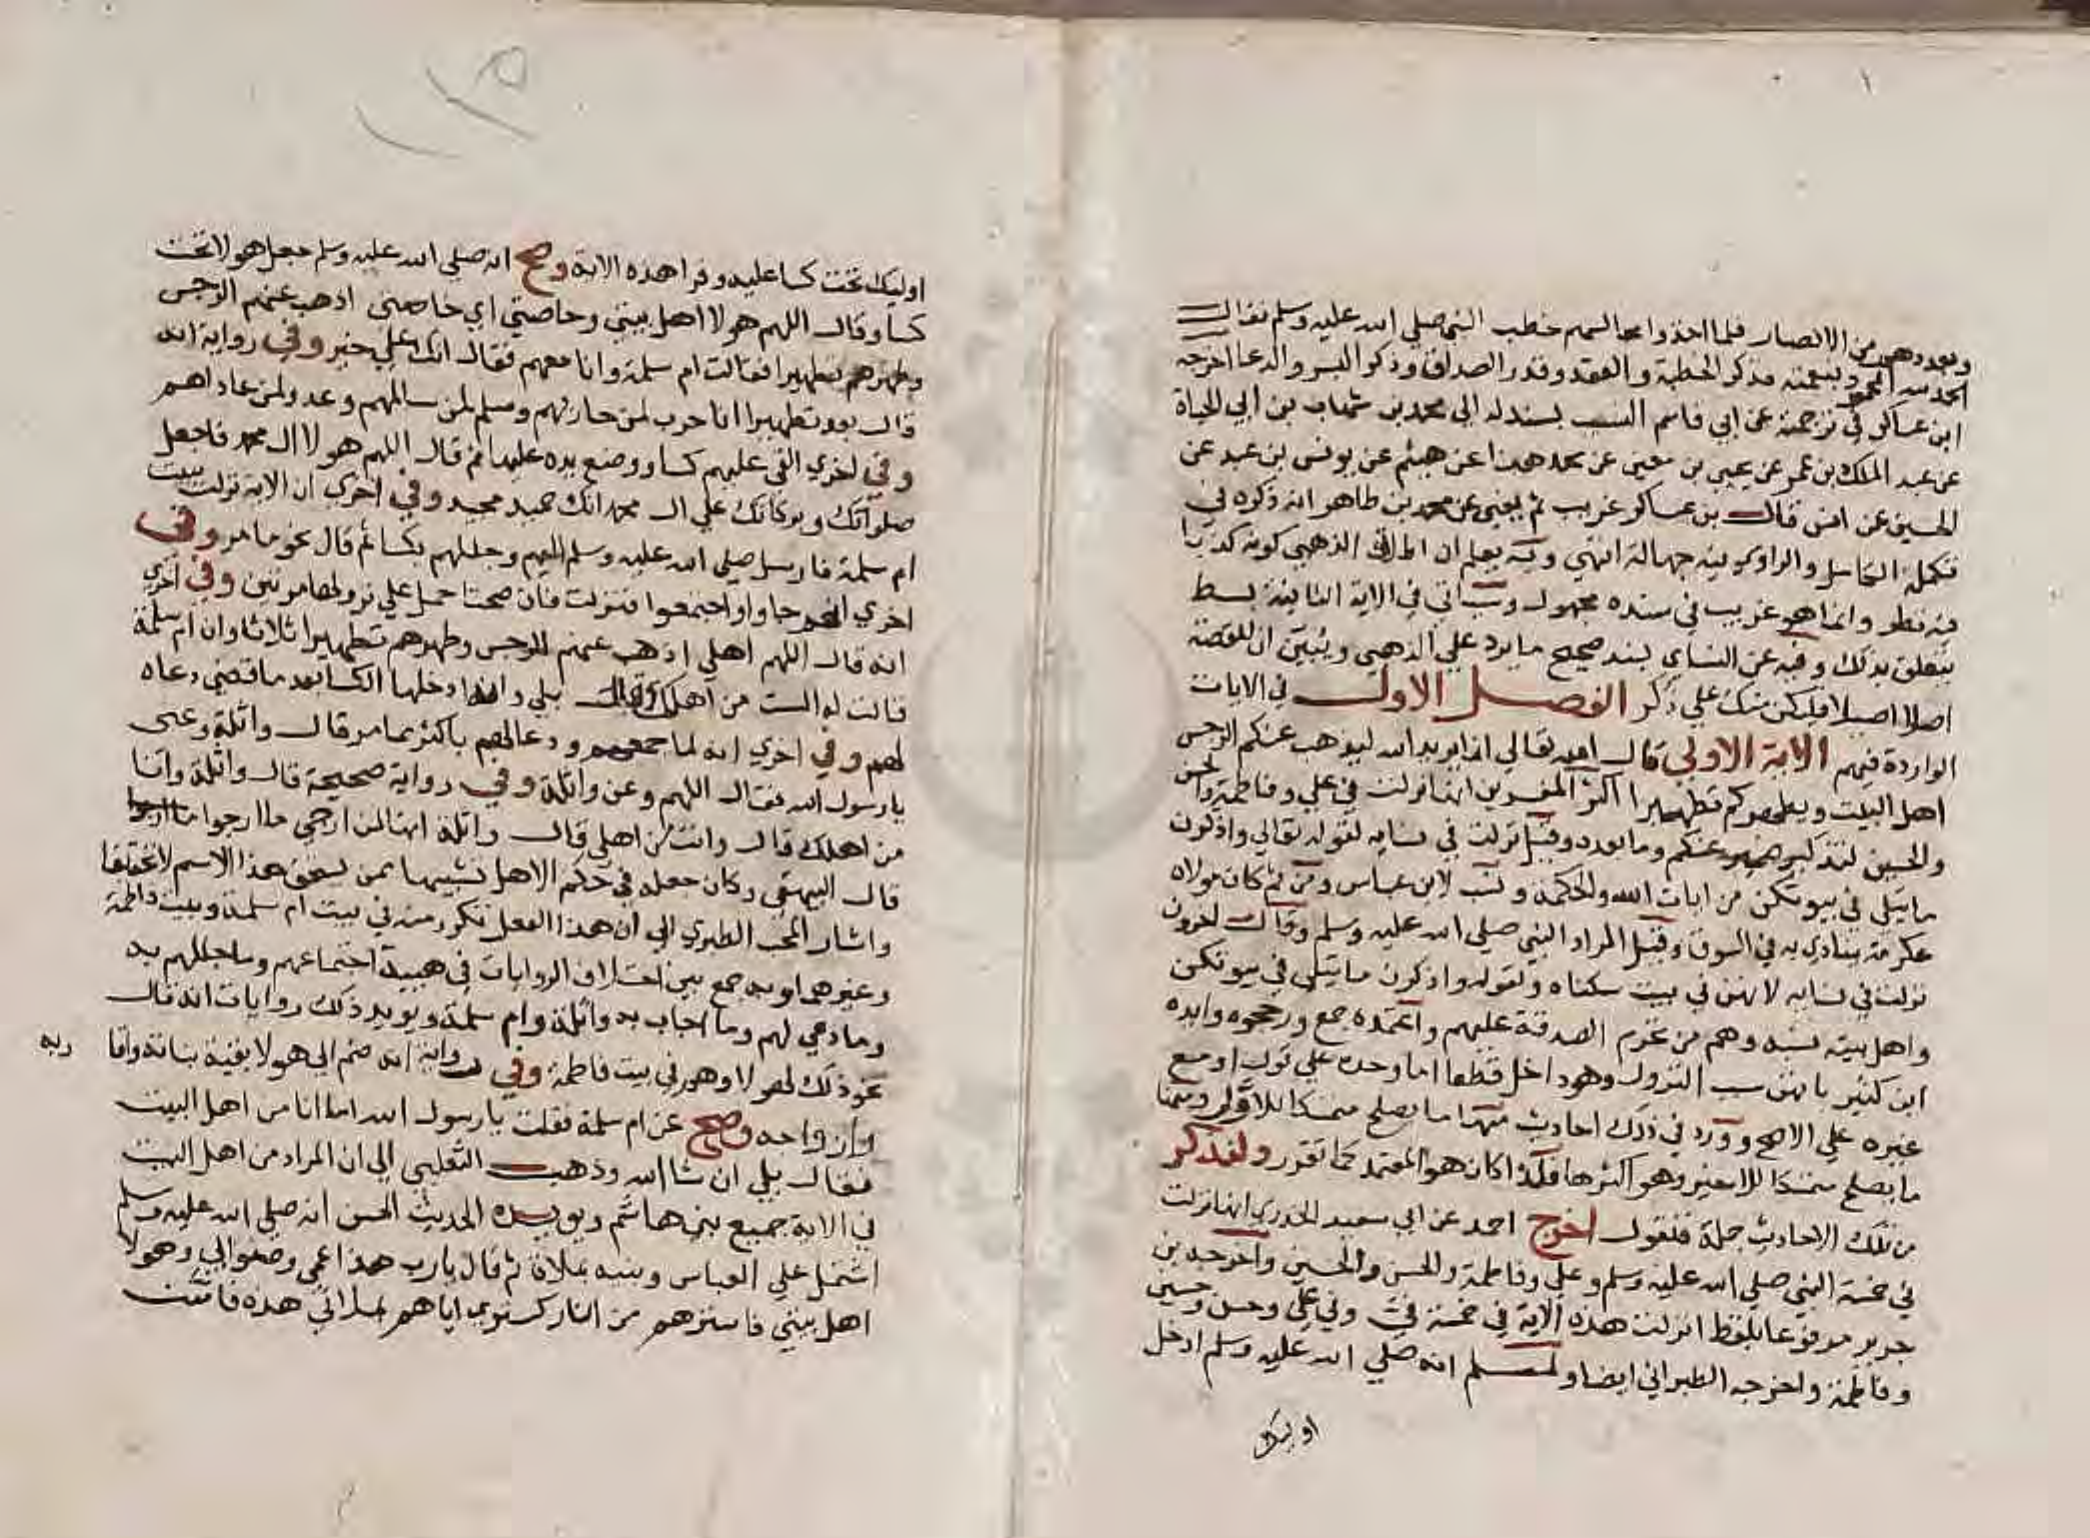 ١
وبعددهم من الانصار فلما اخذوا مجالسهم خطب النبي صلي الله عليه وسلم فقال
الحمد لله المحمود بنعمته فذكر الخطبة والعقد وقدر الصداق وذكر البسر والدعا اخرجه
ابن عساكر في ترجمة عن ابي قاسم النسيب بسند له الي محمد بن شهاب بن ابي الحياة
عن عبد الملك بن عمر عن يحيي بن معين عن محمد هذا عن هيثم عن يونس بن عبد عن
الحسن عن انس قال بن عساكر غريب ثم يعني عن محمد بن طاهر انه ذكره في
تكملة الكامل والراوي فيه جهالة انتهي وبه يعلم ان اطلاق الذهبي كونه كذبا
فيه نظر وانما هو غريب في سنده مجهول وسياتي في الاية الثانية بسط
يتعلق بذلك وفيه عن النساي بسند صحيح ما يرد علي الذهبي ويبين ان للقصة
اصلا اصيلا فليكن منك علي ذكر الفصل الاول في الايات
الواردة فيهم الاية الاولي قال الله تعالي انما يريد الله ليذهب عنكم الرجس
اهل البيت ويطهركم تطهيرا اكثر المفسرين انها نزلت في علي وفاطمة والحسن
والحسين لتذكير ضمير عنكم وما بعده وقيل نزلت في نسايه لقوله تعالي واذكرن
ما يتلي في بيوتكن من ايات الله والحكمة ونسب لابن عباس ومن ثم كان مولاه
عكرمة ينادي به في السوق وقيل المراد النبي صلي الله عليه وسلم وقال اخرون
نزلت في نسايه لانهن في بيت سكناه ولقوله واذكرن ما يتلي في بيوتكن
واهل بيته نسبه وهم من تحرم الصدقة عليهم واعتمده جمع ورجحوه وايده
ابن كثير بانهن سبب النزول وهو داخل قطعا اما وحده علي قول او مع
غيره علي الاصح وورد في ذلك احاديث منها ما يصلح متمسكا للاول ومنها
ما يصلح متمسكا للاخير وهو اكثرها فلذا كان هو المعتمد كما تقرر ولنذكر
من تلك الاحاديث جملة فنقول اخرج احمد عن ابي سعيد الخدري انها نزلت
في خمسة النبي صلي الله عليه وسلم وعلي وفاطمة والحسن والحسين واخرجه بن
جرير مرفوعا بلفظ انزلت هذه الاية في خمسة في وفي علي وحسن وحسين
وفاطمة واخرجه الطبراني ايضا ولمسلم انه صلي الله عليه وسلم ادخل
اوليك
اوليك تحت كسا عليه وقرا هذه الاية وصح انه صلي الله عليه وسلم جعل هولا تحت
كسا وقال اللهم هولا اهل بيتي وحاصتي اي خاصتي اذهب عنهم الرجس
وطهرهم تطهيرا فقالت ام سلمة وانا معهم فقال انك علي خير وفي رواية انه
قال بعد تطهيرا انا حرب لمن حاربهم وسلم لمن سالمهم وعدو لمن عاداهم
وفي اخري القي عليهم كسا ووضع يده عليها ثم قال اللهم هولا ال محمد فاجعل
صلواتك وبركاتك علي ال محمد انك حميد مجيد وفي اخري ان الاية نزلت ببيت
ام سلمة فارسل صلي الله عليه وسلم اليهم وجللهم بكسا ثم قال نحو ما مر وفي
اخري انهم جاوا واجتمعوا فنزلت فان صحتا حمل علي نزولها مرتين وفي اخري
انه قال اللهم اهلي اذهب عنهم الرجس وطهرهم تطهيرا ثلاثا وان ام سلمة
قالت له الست من اهلك قال بلي وانه ادخلها الكسا بعد ما قضي دعاه
لهم وفي اخري انه لما جمعهم ودعا لهم باكثر مما مر قال واثلة وعلي
يا رسول الله فقال اللهم وعن واثلة وفي رواية صحيحة قال واثلة وانا
من اهلك قال وانت من اهلي قال واثلة انها لمن ارجي ما ارجوا
قال البيهقي وكان جعله في حكم الاهل تشبيها بمن يستحق هذا الاسم لا تحقيقا
واشار المحب الطبري الي ان هذا الفعل تكرر منه في بيت ام سلمة وبيت فاطمة
وغيرهما وبه جمع بين اختلاف الروايات في هيية اجتماعهم وما جللهم به
وما دعي لهم وما اجاب به واثلة وام سلمة ويويد ذلك روايات انه قال
نحو ذلك لهولا وهم في بيت فاطمة وفي رواية انه ضم الي هولا بقية بناته واقاربه
وازواجه وصح عن ام سلمة فقلت يا رسول الله اما انا من اهل البيت
فقال بلي ان شا الله وذهب الثعلبي الي ان المراد من اهل البيت
في الاية جميع بني هاشم ويويده الحديث الحسن انه صلي الله عليه وسلم
اشتمل علي العباس وبنيه بملاة ثم قال يا رب هذا عمي وصنو ابي وهولا
اهل بيتي فاسترهم من النار كستري اياهم بملاتي هذه فامنت